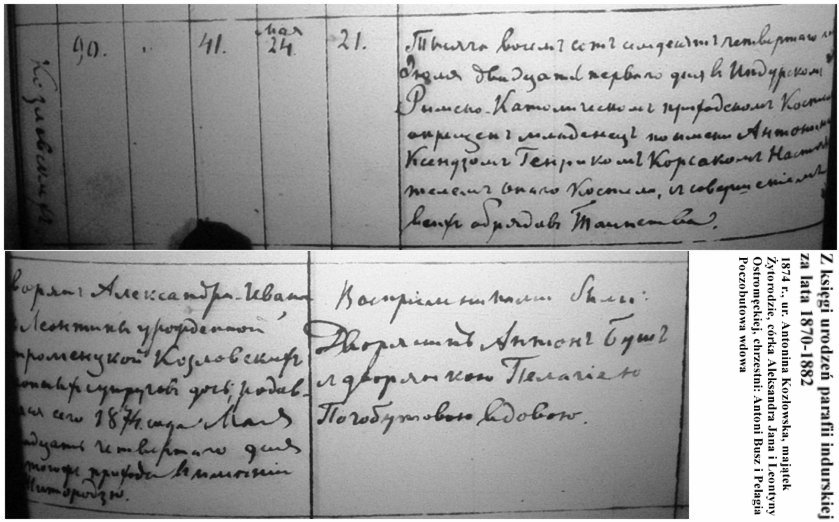 Козловская
90. 41. Мая 24. 21.
Тысяча восемь сотъ семдесятъ четвертаго
Іюля двадцать перваго дня въ Индурскомъ
Римско-Католическомъ приходскомъ Костелѣ
окрещенъ младенецъ по имени Антонина
Ксендзомъ Генрикомъ Корсакомъ
телемъ онаго Костела, съ совершеніемъ
всѣхъ обрядовъ Таинства.
Александра-Ивана
Леонтины урожденной
Козловскихъ
дочь, родив-
сего 1874 года Мая
четвертаго дня
прихода въ имѣніи
Житородзю.
Воспріемниками были:
Дворянинъ Антонъ Бушъ
и дворянкою Пелагіею
Почобутовою вдовою.
Z księgi urodzeń parafii indurskiej
za lata 1870-1882
1874 r., ur. Antonina Kozłowska, majątek
Żytorodzie, córka Aleksandra Jana i Leontyny
Ostromęckiej, chrzestni: Antoni Busz i Pelagia
Poczobutowa wdowa